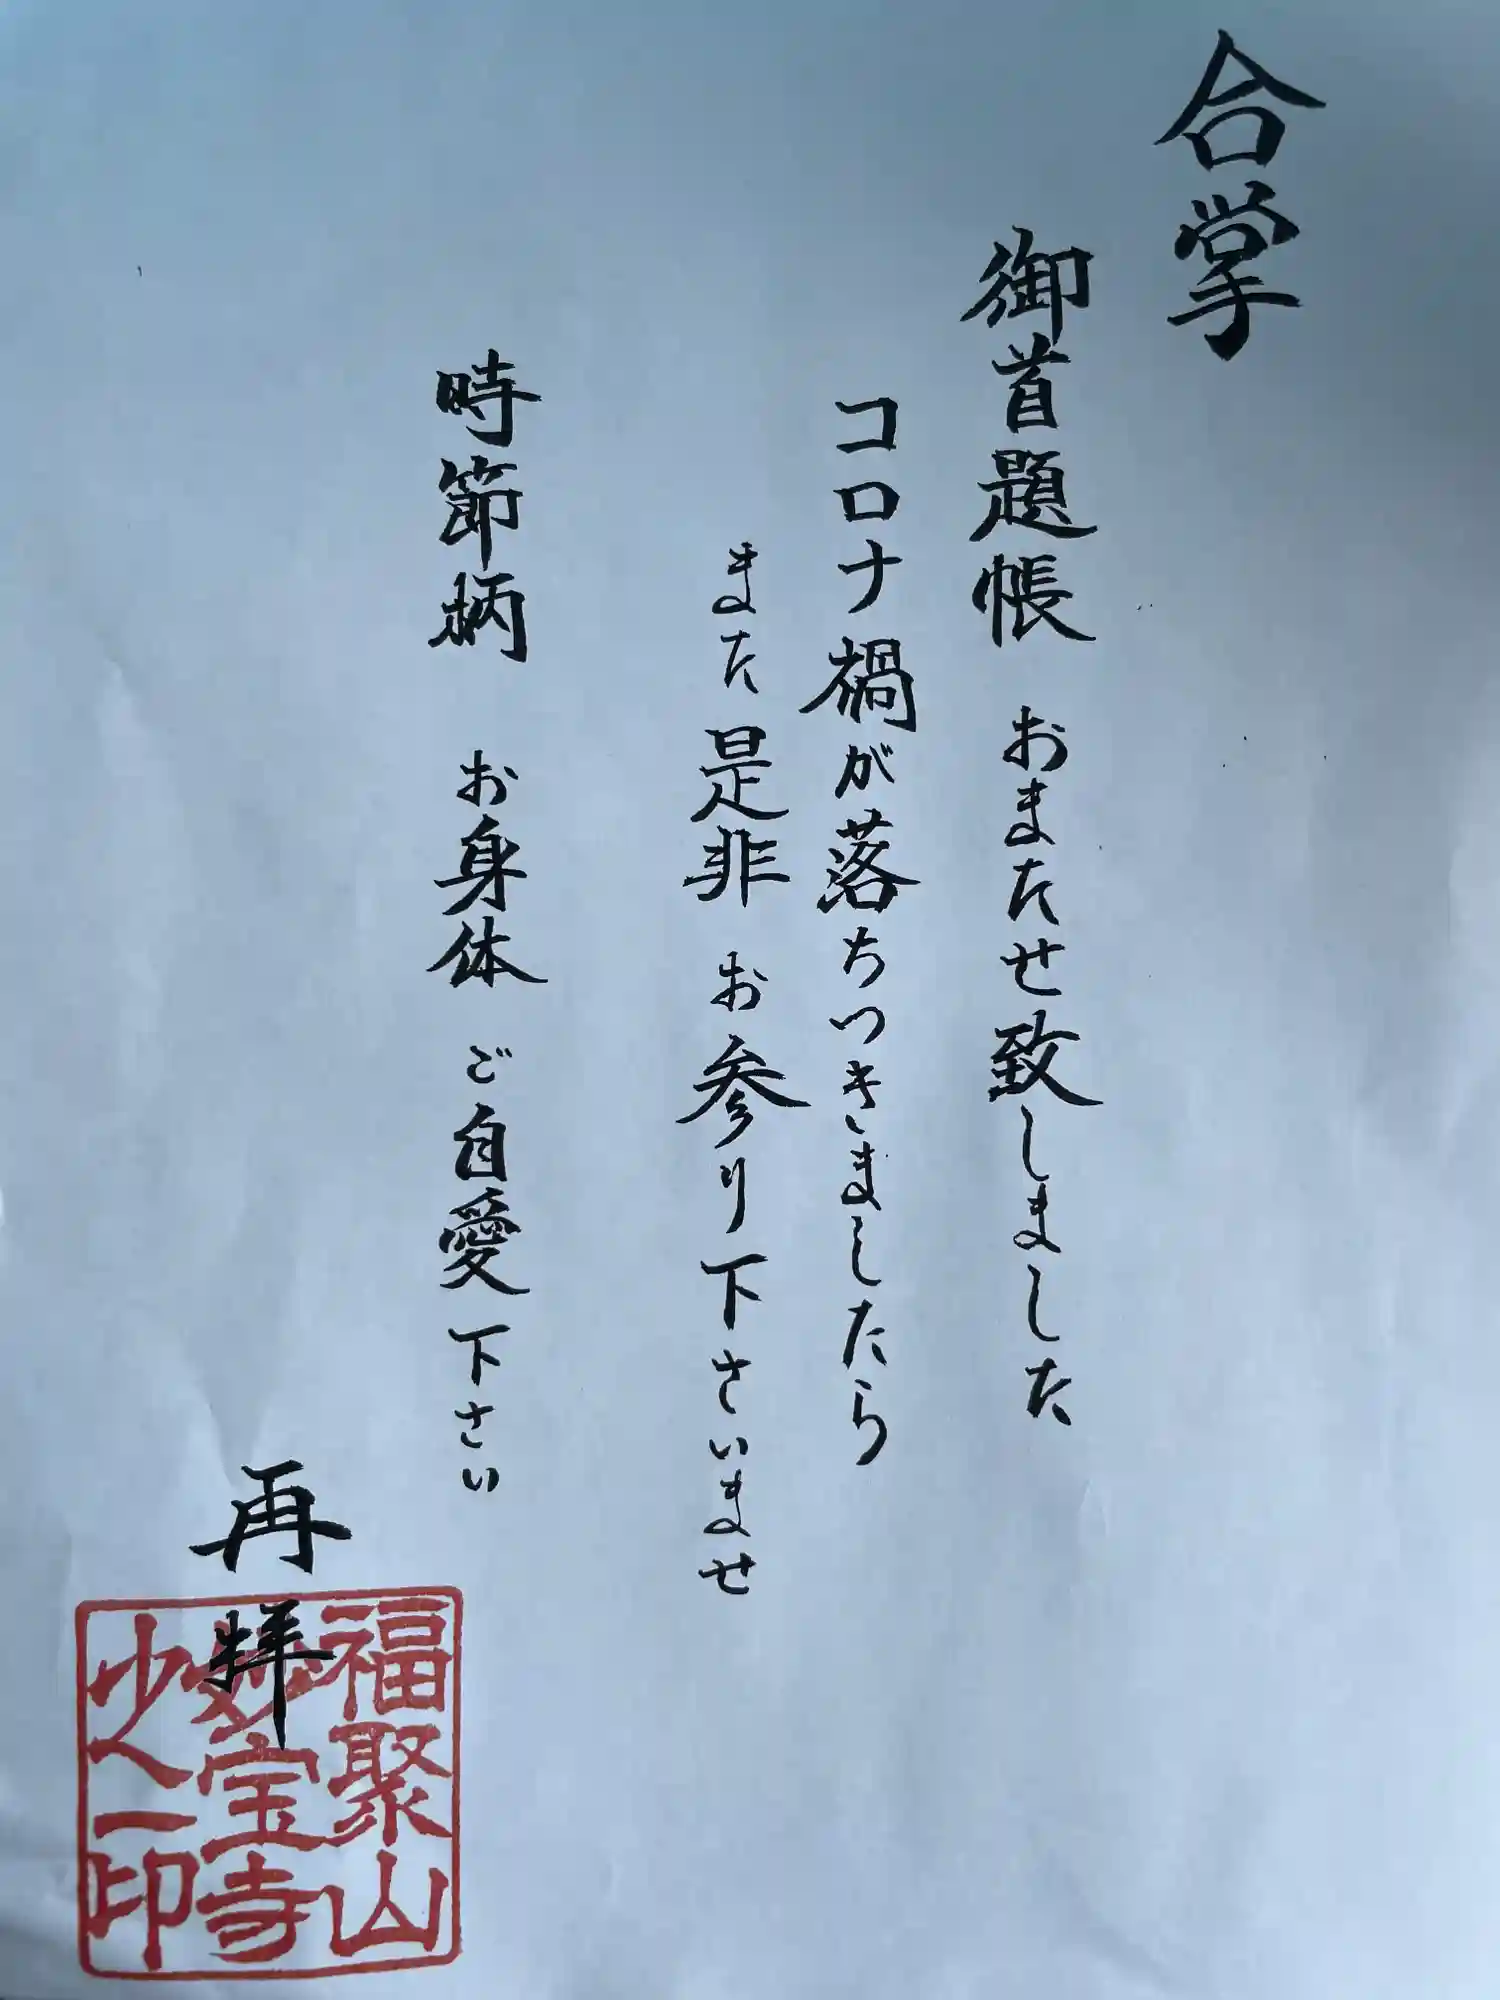 合掌
御首題帳 おまたせ致しました
コロナ禍が落ちつきましたら
また是非 お参り下さいませ
時節柄 お身体 ご自愛下さい
再拝
福聚山
妙宝寺
少人一印